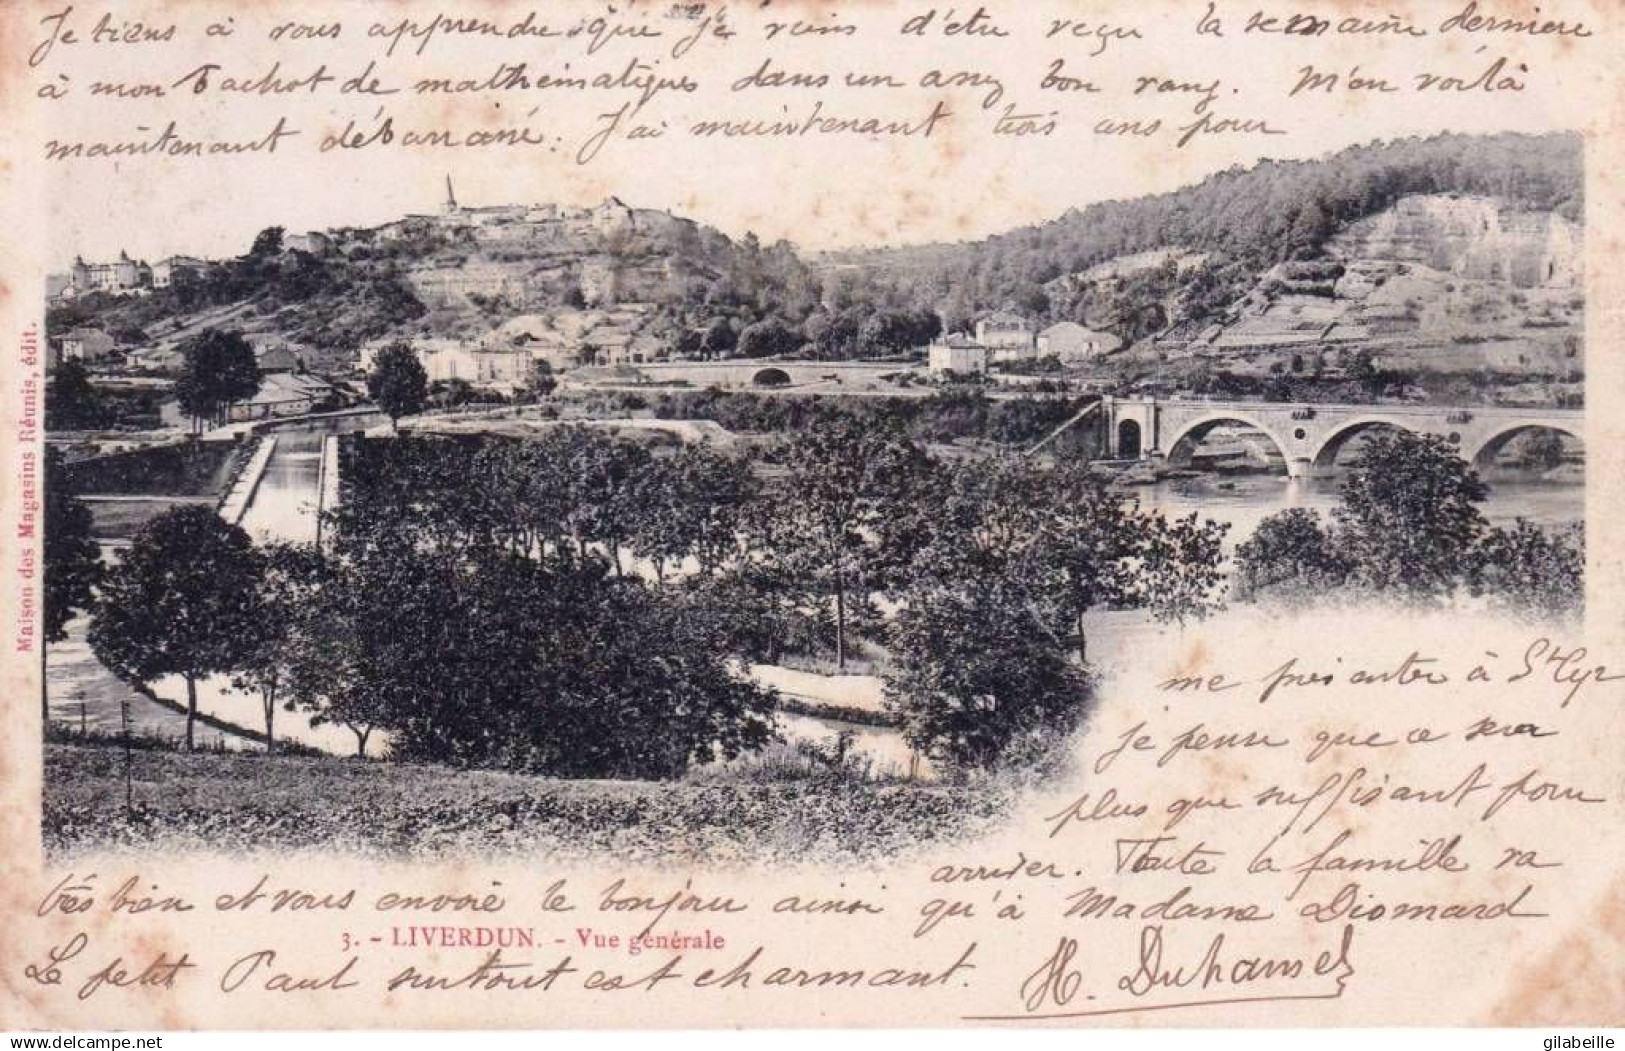 Je tiens à vous apprendre que je viens d'être reçu la semaine dernière
à mon Bachot de mathématiques dans un assez bon rang. M'en voilà
maintenant débarrassé. J'ai maintenant trois ans pour
me présenter à St Cyr
je pense que ce sera
plus que suffisant pour
arriver. Toute la famille va
très bien et vous envoie le bonjour ainsi qu'à Madame Diomard
Le petit Paul surtout est charmant.
H. Duhansel
3. - LIVERDUN. - Vue générale
Maison des Magasins Réunis, édit.
gilabeille
delcampe.net